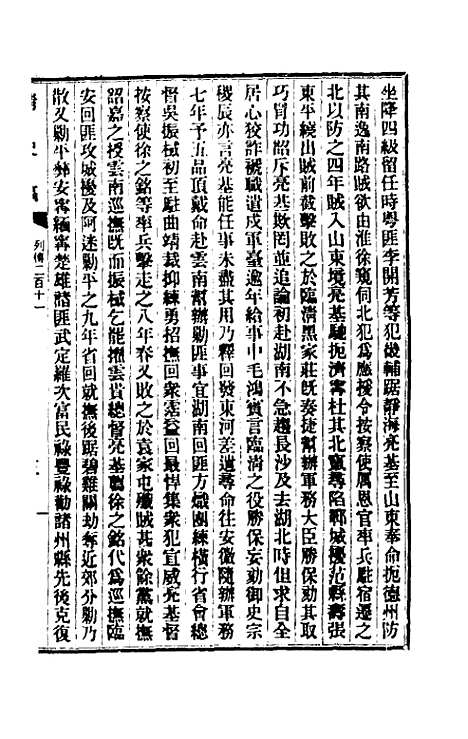 坐降四級留任時粤匪李開芳等犯畿輔踞靜海亮基至山東奉命扼德州防
其南逸南路賊欲由淮徐窺伺北犯爲應援令按察使厲恩官率兵駐宿遷之
北以防之四年賊入山東境亮基馳扼濟寧杜其北竄尋陷鄆城擾范縣壽張
東平繞出賊前截擊敗之於臨清黑家莊旣奏捷幫辦軍務大臣勝保劾其取
巧冒功詔斥亮基欺罔並追論初赴湖南不急趨長沙及去湖北時但求自全
居心狡詐褫職遣戍軍臺逾年給事中毛鴻賓言臨清之役勝保妄劾御史宗
稷辰亦言亮基能任事未盡其用乃釋回發東河差遣尋命往安徽隨辦軍務
七年予五品頂戴命赴雲南幫辦勦匪事宜湖南回匪方熾團練橫行省會總
督吳振棫初至駐曲靖裁抑練勇招撫回衆霑益回最悍集衆犯宣威亮基督
按察使徐之銘等率兵擊走之八年春又敗之於袁家屯殲賊甚衆餘黨就撫
詔嘉之授雲南巡撫旣而振棫乞罷擢雲貴總督亮基薦徐之銘代爲巡撫臨
安回匪攻城擾及阿迷勦平之九年省回就撫後踞碧雞關劫奪近郊分勦乃
散又勦平彝安寗緬寗楚雄諸匪武定羅次富民祿豐祿勸諸州縣先後克復
列傳二百十一